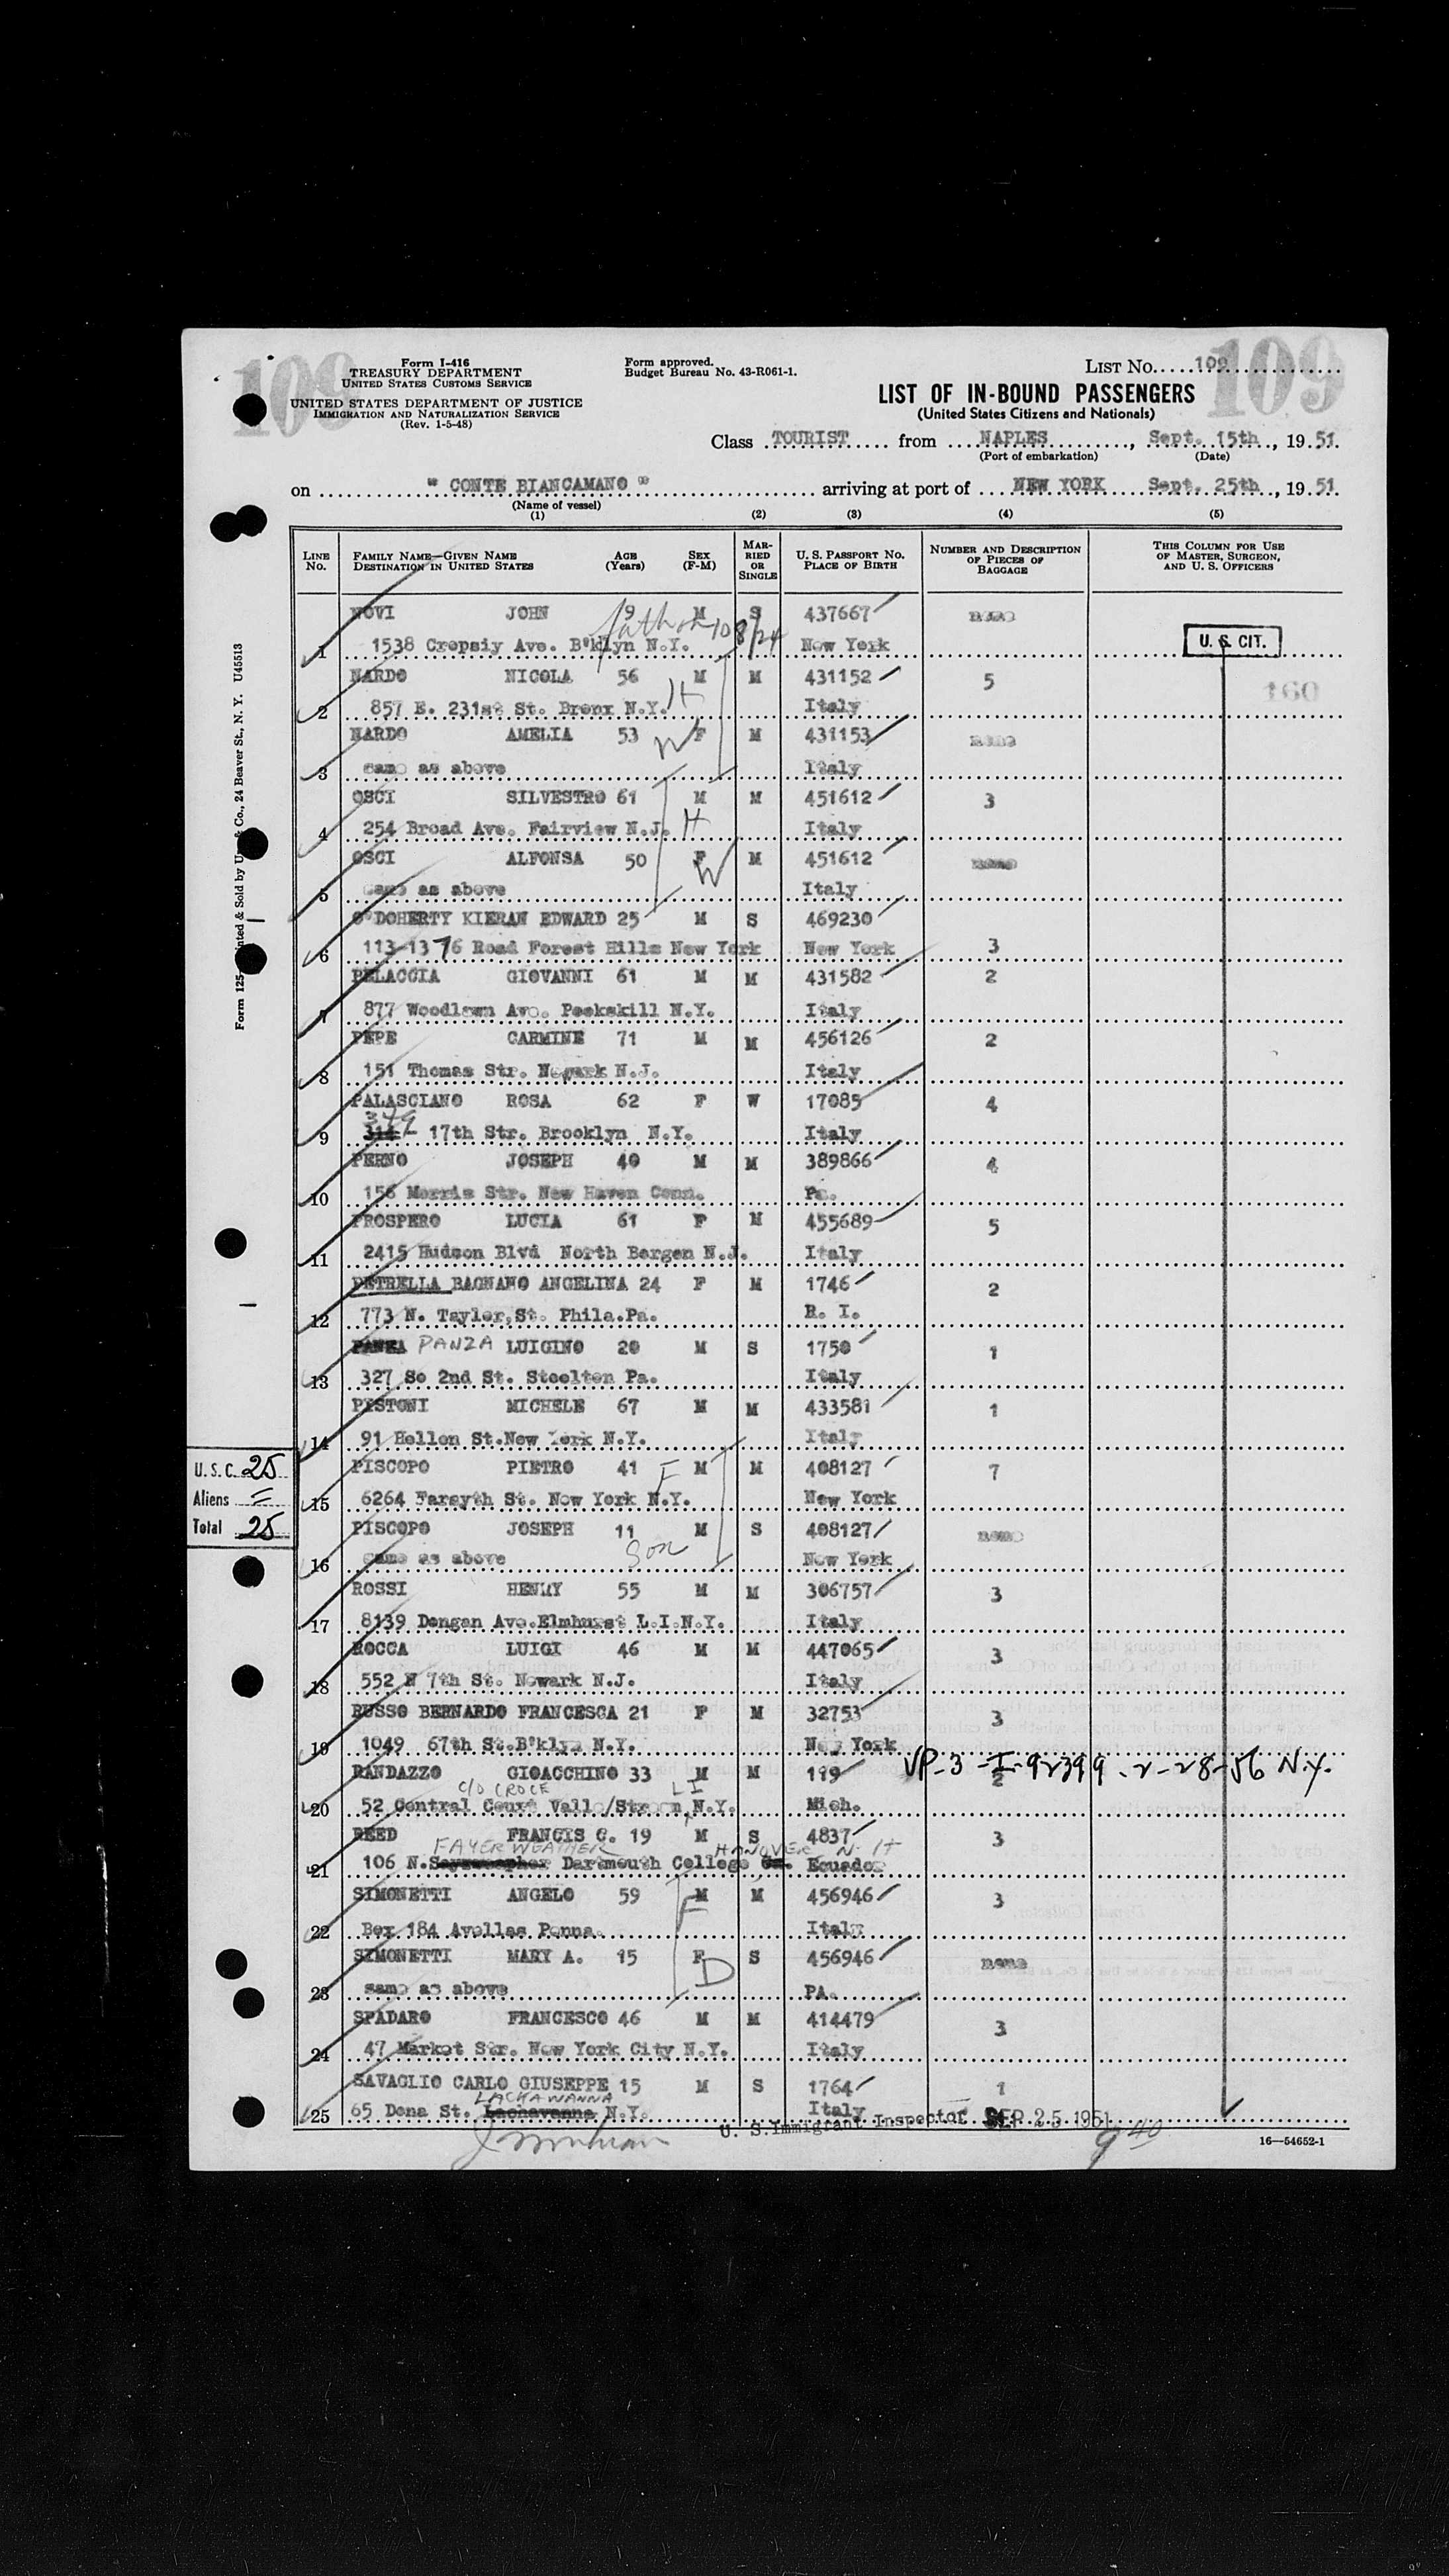 109
109
Form I-416
TREASURY DEPARTMENT
UNITED STATES CUSTOMS SERVICE
UNITED STATES DEPARTMENT OF JUSTICE
IMMIGRATION AND NATURALIZATION SERVICE
(Rev. 1-5-48)
Form approved.
Budget Bureau No. 43-R061-1.
LIST No. 109
LIST OF IN-BOUND PASSENGERS
(United States Citizens and Nationals)
Class TOURIST from NAPLES, Sept. 15th, 1951.
(Port of embarkation) (Date)
on " CONTE BIANCAMANO " arriving at port of NEW YORK Sept. 25th, 1951.
(Name of vessel)
(1) (2) (3) (4) (5)
LINE No. FAMILY NAME—GIVEN NAME DESTINATION IN UNITED STATES AGE (Years) SEX (F-M) MARRIED OR SINGLE U. S. PASSPORT No. PLACE OF BIRTH NUMBER AND DESCRIPTION OF PIECES OF BAGGAGE THIS COLUMN FOR USE OF MASTER, SURGEON, AND U. S. OFFICERS
NOVI JOHN 9 M S 437667 none
father 108/24
1 1538 Cropsiy Ave. B'klyn N.Y. New York U. S. CIT.
NARDO NICOLA 56 M M 431152 5 160
2 857 E. 231st St. Bronx N.Y. H Italy
NARDO AMELIA 53 W F M 431153 none
3 same as above Italy
OSCI SILVESTRO 61 M M 451612 3
4 254 Broad Ave. Fairview N.J. H Italy
OSCI ALFONSA 50 F M 451612 none
W
5 same as above Italy
O'DOHERTY KIERAN EDWARD 25 M S 469230
6 113-13 76 Road Forest Hills New York New York 3
PELACCIA GIOVANNI 61 M M 431582 2
7 877 Woodlawn Ave. Peekskill N.Y. Italy
PEPE CARMINE 71 M M 456126 2
8 151 Thomas Str. Newark N.J. Italy
PALASCIANO ROSA 62 F W 17085 4
349
9 314 - 17th Str. Brooklyn N.Y. Italy
PERNO JOSEPH 40 M M 389866 4
10 156 Morris Str. New Haven Conn. Pa.
PROSPERO LUCIA 61 F M 455689 5
11 2415 Hudson Blvd North Bergen N.J. Italy
PETRELLA BAGNANO ANGELINA 24 F M 1746 2
12 773 N. Taylor,St. Phila.Pa. R. I.
PANZA LUIGINO 20 M S 1750 1
13 327 So 2nd St. Steelton Pa. Italy
PISTONI MICHELE 67 M M 433581 1
14 91 Hellon St.New York N.Y. Italy
PISCOPO PIETRO 41 F M M 408127 7
15 6264 Farsyth St. New York N.Y. New York
PISCOPO JOSEPH 11 M S 408127 none
Son
16 same as above New York
ROSSI HENRY 55 M M 306757 3
17 8139 Dongan Ave.Elmhurst L.I.N.Y. Italy
ROCCA LUIGI 46 M M 447065 3
18 552 N 7th St. Newark N.J. Italy
RUSSO BERNARDO FRANCESCA 21 F M 32753 3
19 1049 67th St.B'klyn N.Y. New York
RANDAZZO GIOACCHINO 33 M M 119 2 VP-3-I-92399-2-28-56 N.Y.
C/O CROCE L I
20 52 Central Court Valle/Stream, N.Y. Mich.
REED FRANCIS C. 19 M S 4837 3
FAYERWEATHER HANOVER N. H
21 106 N. Dartmouth College Ecuador
SIMONETTI ANGELO 59 M M 456946 3
F
22 Box 184 Avellas Penna. Italy
SIMONETTI MARY A. 15 F S 456946 none
D
23 same as above PA.
SPADARO FRANCESCO 46 M M 414479 3
24 47 Market Str. New York City N.Y. Italy
SAVAGLIO CARLO GIUSEPPE 15 M S 1764 1
LACKAWANNA
25 65 Dona St. Lachavanna N.Y. Italy
U. S. Immigrant Inspector SEP 25 1951
9 40
16—54652-1
U. S. C. 25
Aliens =
Total 25